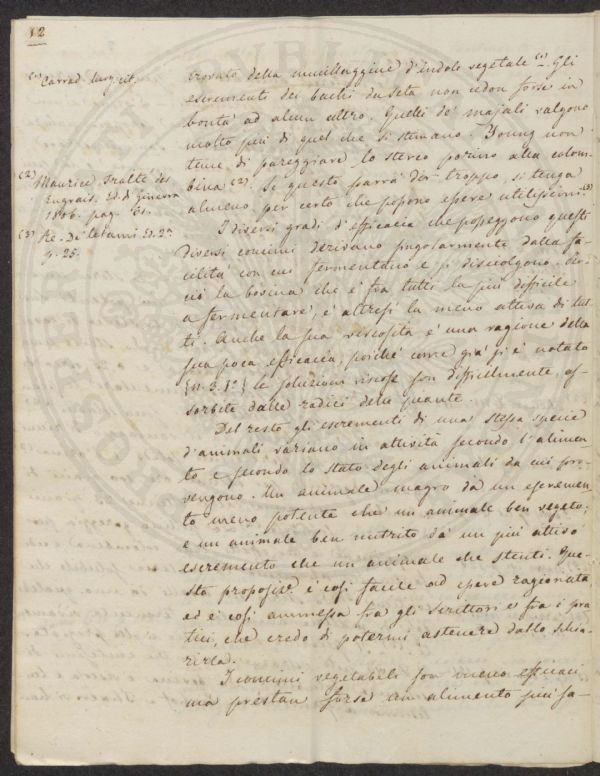 12
(1) Carrad. luog. cit.
(2) Maurice Traité des
Engrais. Ed. di Ginevra
1806. pag. 61.
(3) Re. Di letami Ed. 2ª
p. 25.
trovato della mucillaggine d'indole vegetale (1). Gli
escrementi dei bachi da seta non cedon forse in
bontà ad alcun altro. Quelli de' majali valgono
molto più di quel che si stimano. Young non
teme di pareggiare lo sterco porcino alla colom-
bina (2). Se questo parrà dir troppo si tenga
almeno per certo che possono essere utilissimi. (3)
I diversi gradi d'efficacia che posseggono questi
diversi concimi derivano singolarmente dalla fa-
cilità con cui fermentano e si disciolgono. Per-
ciò la bovina che è fra tutti la più difficile
a fermentare, è altresì la meno attiva di tut-
ti. Anche la sua viscosità è una ragione della
sua poca efficacia, poiché come già si è notato
(n. 3. 1º) le soluzioni viscose son difficilmente as-
sorbite dalle radici delle piante.
Del resto gli escrementi di una stessa specie
d'animali variano in attività secondo l'alimen-
to e secondo lo stato degli animali da cui pro-
vengono. Un animale magro dà un escremen-
to meno potente che un animale ben vegeto;
e un animale ben nutrito dà un più attivo
escremento che un animale che stenti. Que-
sta proposiz.e è così facile ad essere ragionata
ed è così ammessa fra gli scrittori e fra i pra-
tici, che credo di potermi astenere dallo schia-
rirla.
I concimi vegetabili son meno efficaci
ma prestan forse un alimento più sa-